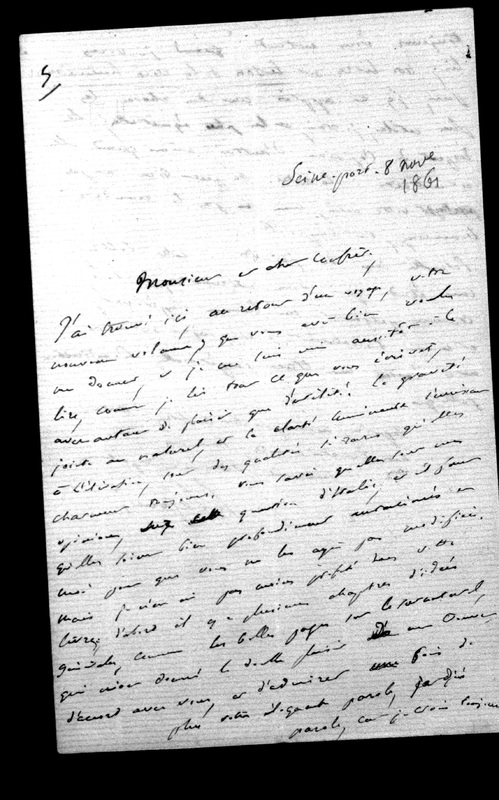 Seine-port - 8 nove
1861
Monsieur et cher Confrère,
J'ai trouvé ici, au retour d'un voyage, votre
nouveau volume, que vous avez bien voulu
me donner, et je me suis mis aussitôt à le
lire, comme je lis tout ce que vous écrivez,
avec autant de plaisir que d'utilité. La gravité
jointe au naturel, et la clarté
à l'élévation, sont des qualités si rares qu'elles
charment toujours. Vous savez quelles sont mes
opinions, question d'Italie, et il faut
qu'elles soient bien profondément enracinées en
moi pour que vous ne les ayez pas modifiées.
mais je n'en ai pas moins profité dans votre
livre; d'abord il y a plusieurs chapitres d'idées
générales, comme les belles pages sur le surnaturel,
qui m'ont donné le double plaisir
d'accord avec vous, et d'admirer fois de
plus votre élégante parole,
parole, car je crois toujours